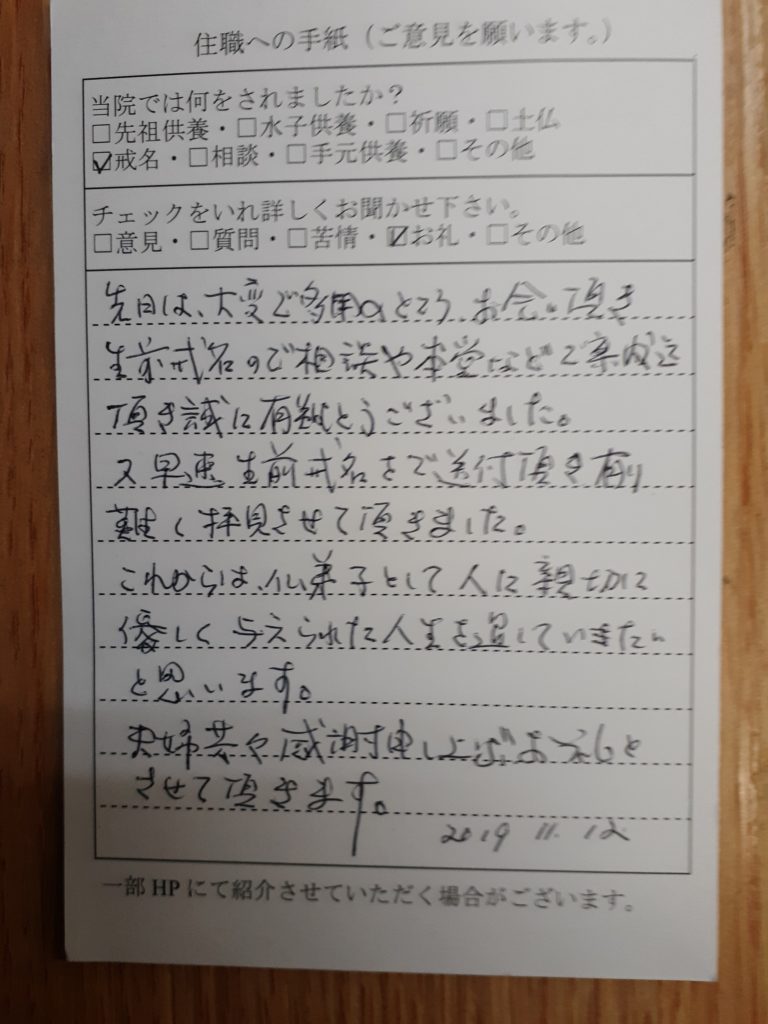 住職への手紙（ご意見を願います。）
当院では何をされましたか？
□先祖供養・□水子供養・□祈願・□土仏
☑戒名・□相談・□手元供養・□その他
チェックをいれ詳しくお聞かせ下さい。
□意見・□質問・□苦情・☑お礼・□その他
先日は、大変ご多用のところ、お会い頂き
生前戒名のご相談や本堂などご案内迄
頂き誠に有難とうございました。
又早速生前戒名をご送付頂き有り
難く拝見させて頂きました。
これからは、仏弟子として人に親切に
優しく与えられた人生を過していきたい
と思います。
夫婦共々感謝申し上げお礼と
させて頂きます。
2019 11. 12
一部 HP にて紹介させていただく場合がございます。